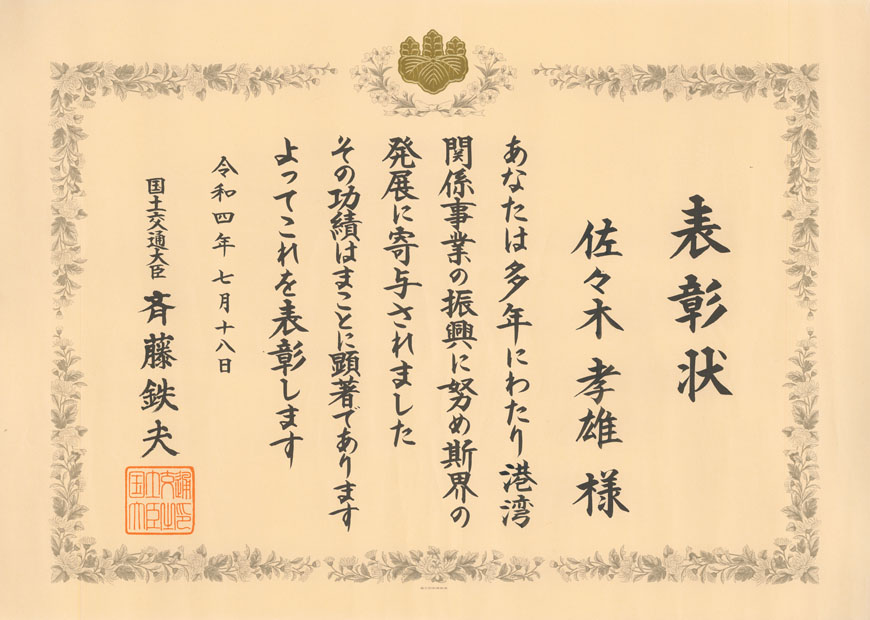 表彰状
佐々木孝雄様
あなたは多年にわたり港湾
関係事業の振興に努め斯界の
発展に寄与されました
その功績はまことに顕著であります
よってこれを表彰します
令和四年七月十八日
国土交通大臣 斉藤鉄夫
国土交通大臣之印